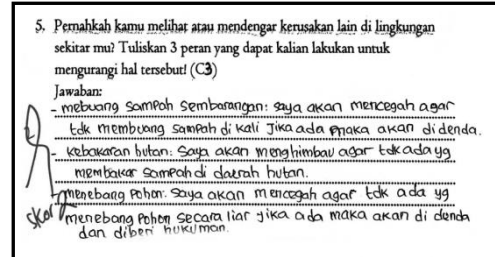 5. Pernahkah kamu melihat atau mendengar kerusakan lain di lingkungan
sekitar mu? Tuliskan 3 peran yang dapat kalian lakukan untuk
mengurangi hal tersebut! (C3)
Jawaban:
- mebuang sampah sembarangan: saya akan mencegah agar
tdk membuang sampah di kali Jika ada maka akan didenda.
- kebakaran hutan: saya akan menghimbau agar tdk ada yg
membakar sampah di daerah hutan.
- menebang pohon: saya akan mencegah agar tdk ada yg
menebang pohon secara liar jika ada maka akan di denda
dan diberi hukuman.
skor